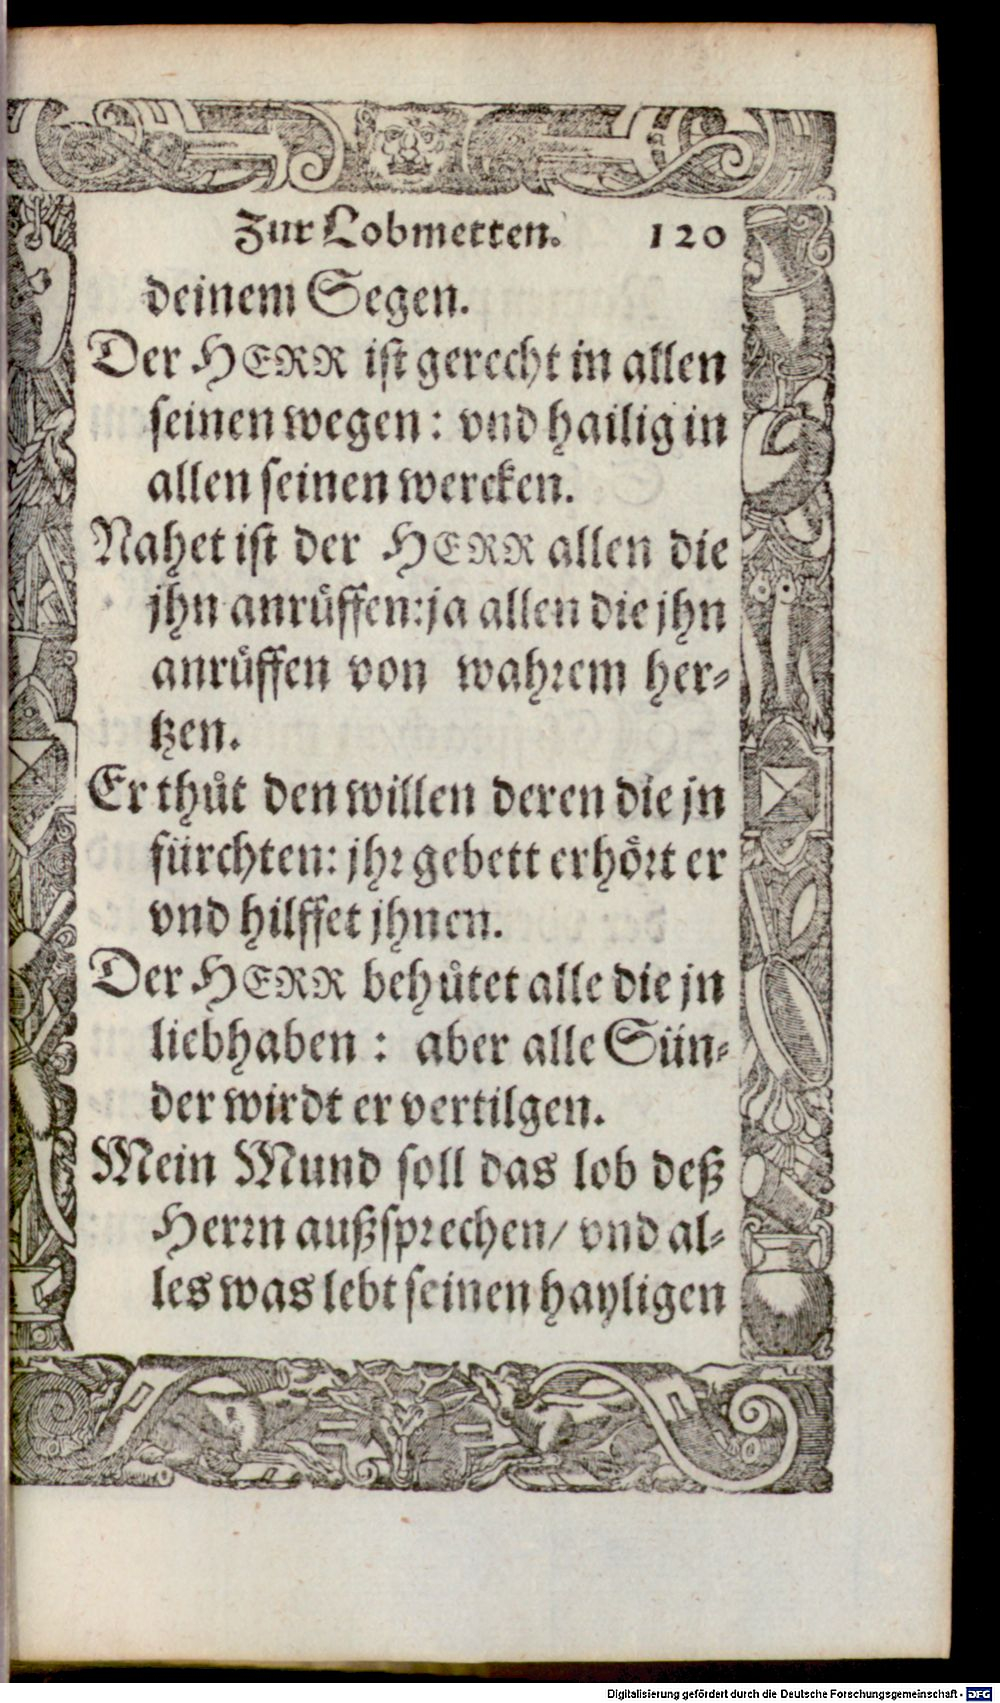 Zur Lobmetten. 120
deinem Segen.
Der HERR ist gerecht in allen
seinen wegen: vnd hailig in
allen seinen wercken.
Nahet ist der HERR allen die
jhn anrůffen: ja allen die jhn
anrůffen von wahrem her-
tzen.
Er thůt den willen deren die jn
fürchten: jhr gebett erhört er
vnd hilffet jhnen.
Der HERR behůtet alle die jn
liebhaben: aber alle Sün-
der wirdt er vertilgen.
Mein Mund soll das lob deß
Herrn außsprechen/ vnd al-
les was lebt seinen hayligen
Digitalisierung gefördert durch die Deutsche Forschungsgemeinschaft - DFG